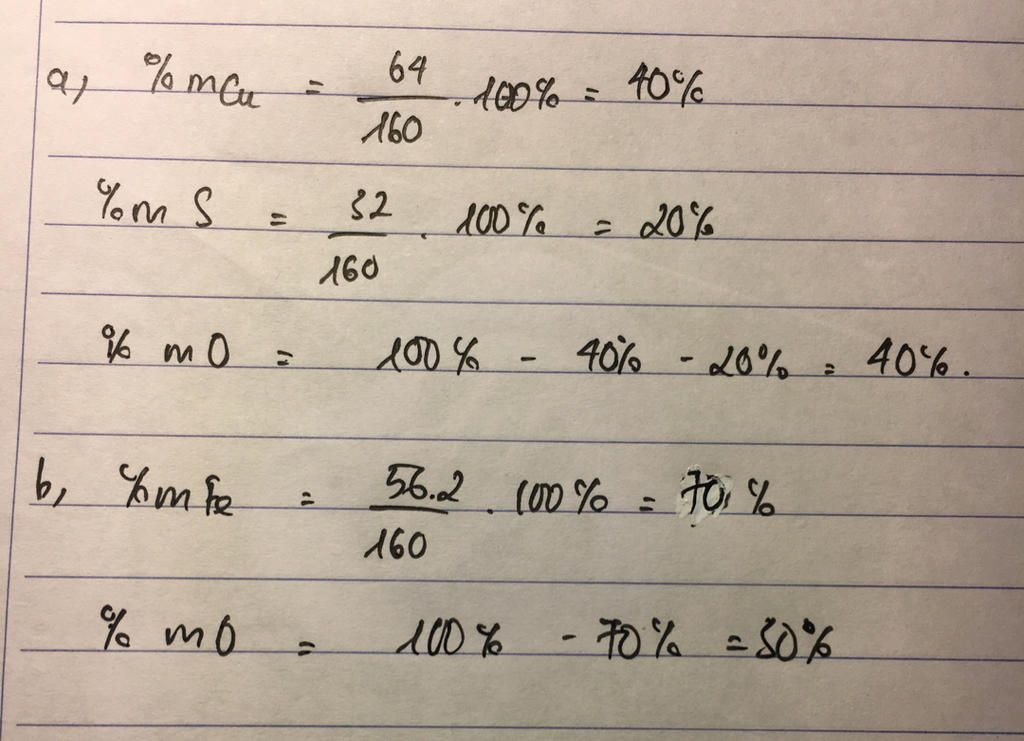 a, % mCu = 64/160 . 100% = 40%
% m S = 32/160 . 100% = 20%
% m O = 100% - 40% - 20% = 40%.
b, % m Fe = 56.2/160 . 100% = 70%
% m O = 100% - 70% = 30%